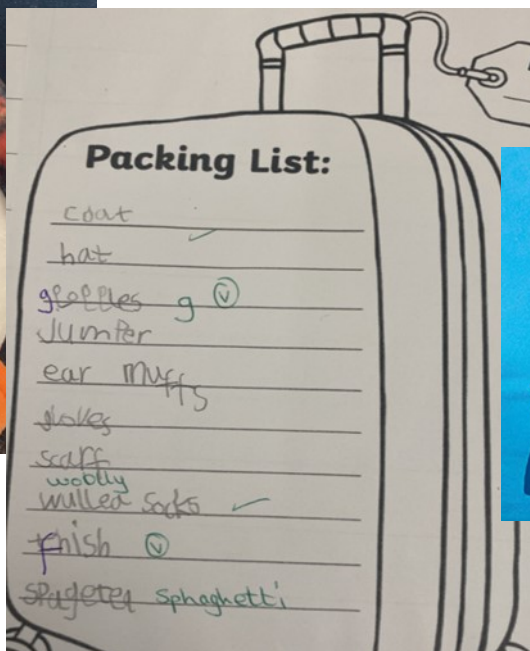 Packing List:
coat
hat
goggles g v
Jumper
ear muffs
gloves
scarf
woolly
wulled socks
fhish v
spageter sphaghetti